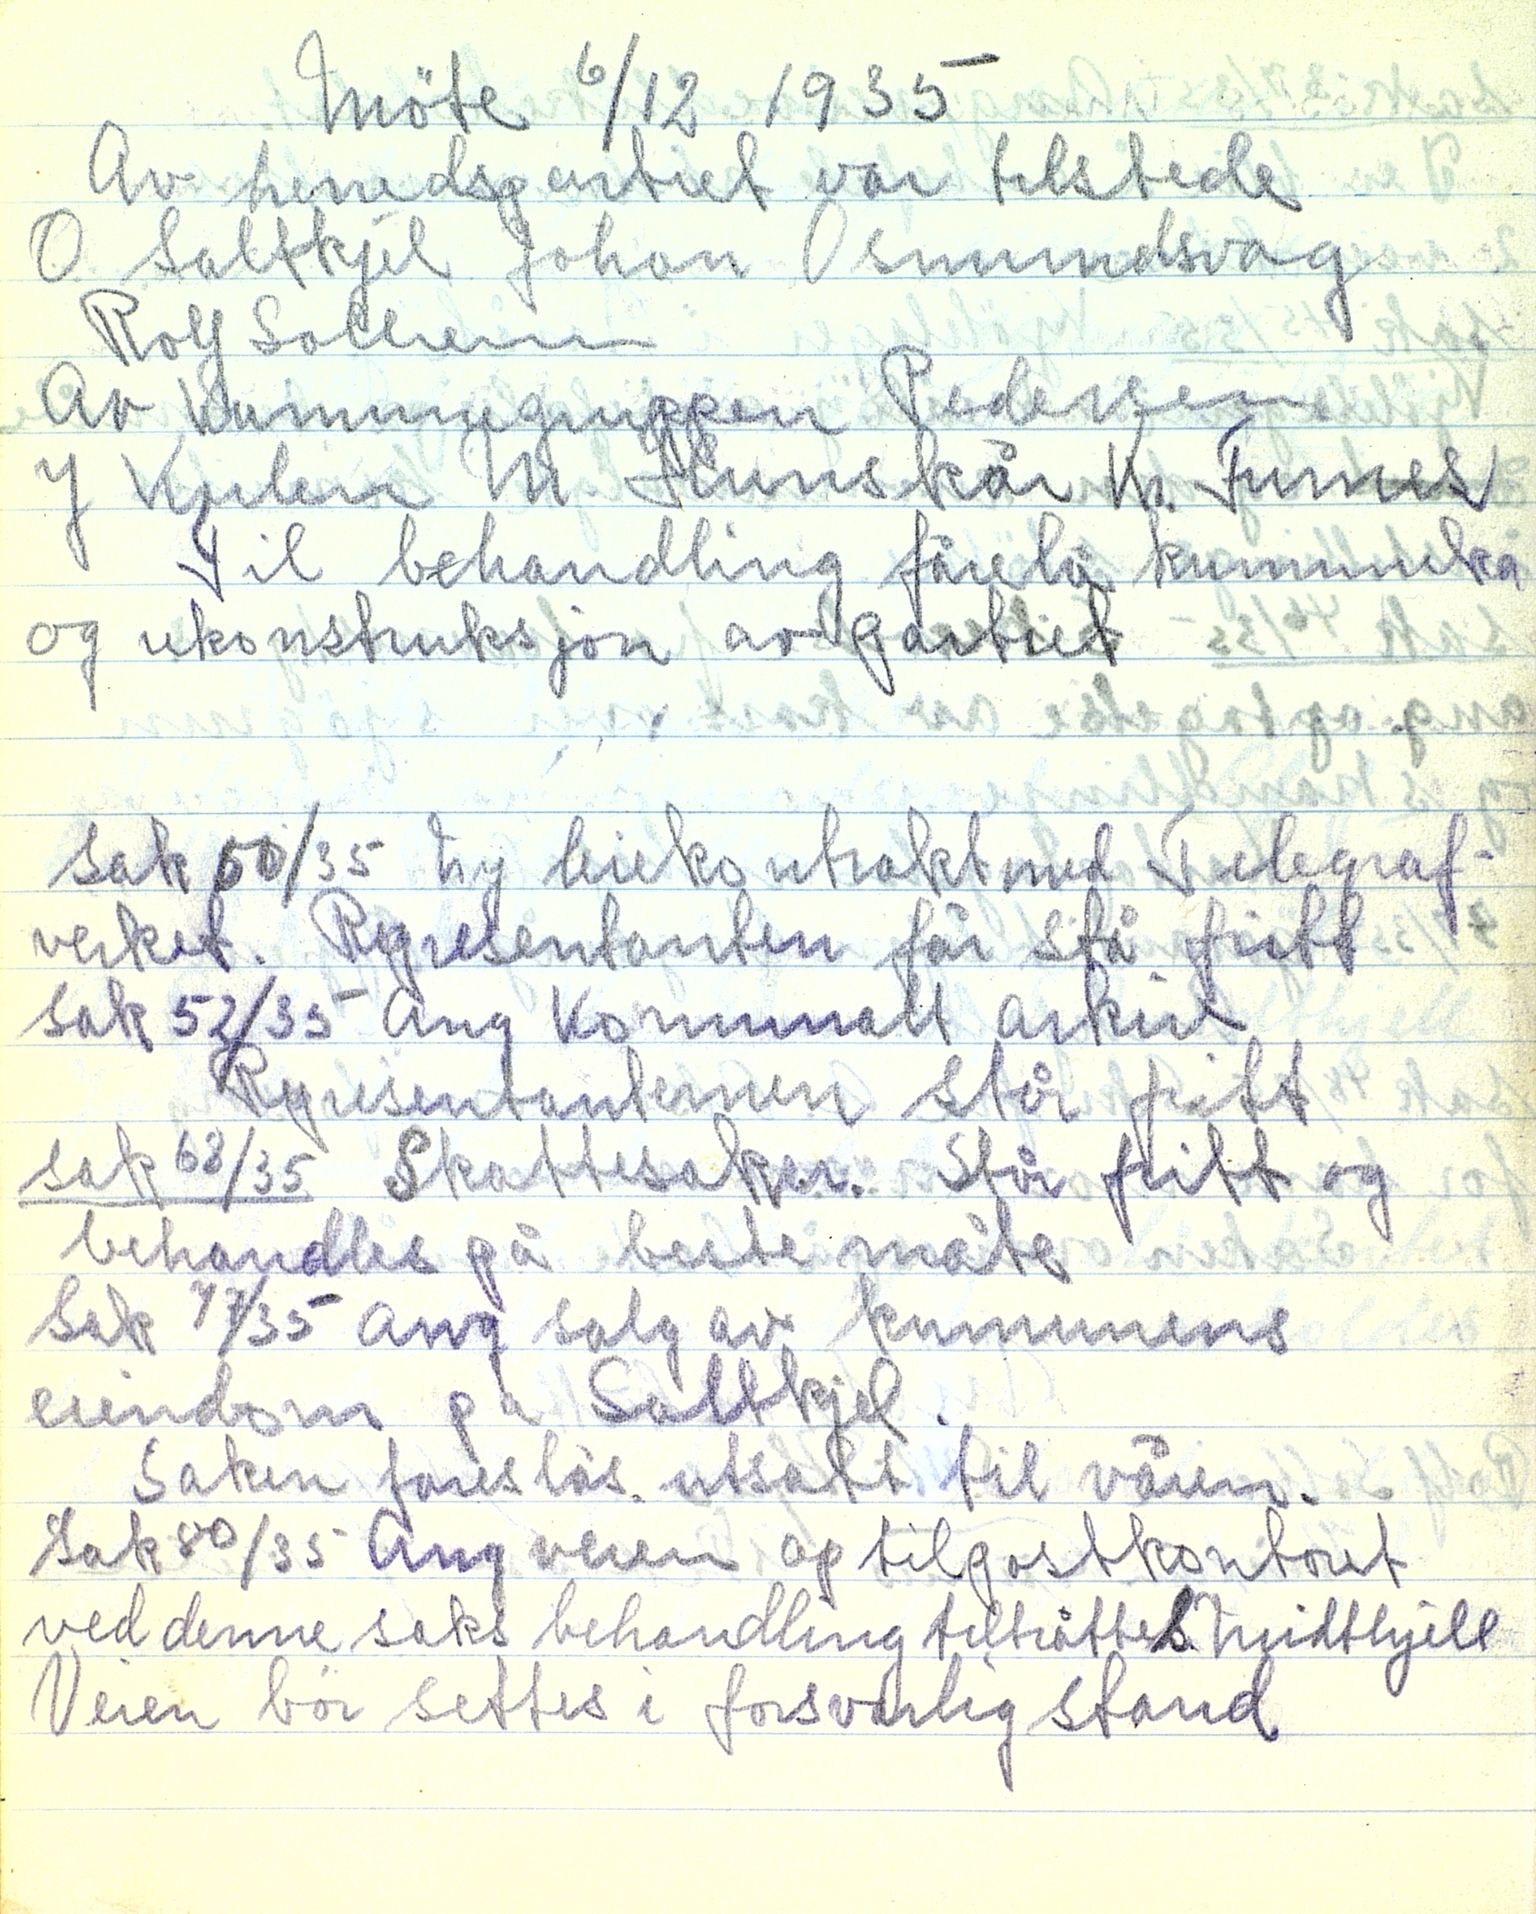 Möte 6/12 1935
Av herredspartiet var tilstede
O. Saltkjel Johan Osmundsvag
Rolf Solheim
Av kommugruppen Pedersen
M Hunskår Kr. Furnes
Til behandling förelå
og rekonstruksjon av partiet
Sak 50/35 Ny leiekontrakt med Telegraf-
verket. Representanten får stå fritt
Sak 52/35 Ang Kommunalt arkiv
Representanternen står fritt
sak 68/35 Skattesaker. Står fritt og
behandles på beste måte
Sak 77/35 Ang salg av kommunens
eiendom på Saltkjel.
Saken foreslås utsatt til våren.
Sak 80/35 Ang veien op til postkontoret
ved denne saks behandling tiltråtte Midtkjell
Veien bör settes i forsvarlig stand